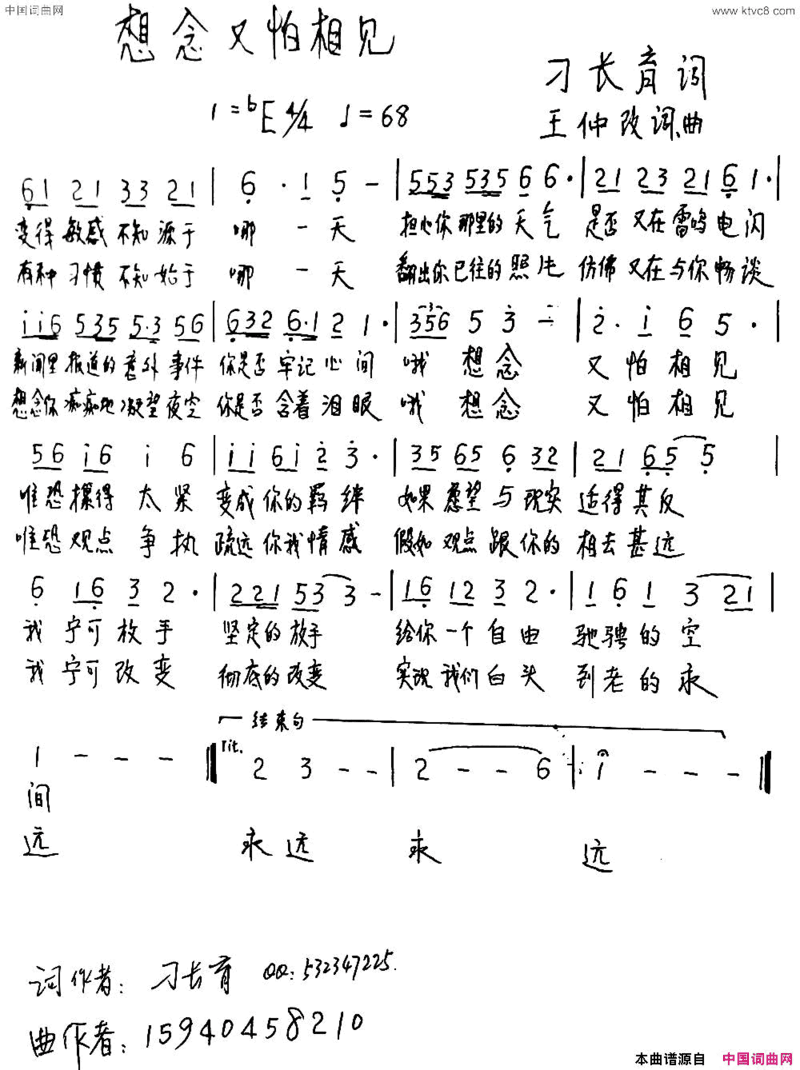 中国词曲网
www.ktvc8.com
想念又怕相见
刁长育词
1=bE 4/4 ♩=68
王仲改词曲
61 21 33 21 | 6 · 1 5 - | 553 535 66 · | 21 23 21 6 1 · |
变得 敏感 不知 源于 哪 一 天 担心你 那里的 天气 是否 又在 雷鸣 电闪
有种 习惯 不知 始于 哪 一 天 翻出你 已往的 照片 仿佛 又在 与你 畅谈
i i 6 535 5·3 56 | 632 6·1 2 1 · | 356 5 3 - | 2 · i 6 5 · |
新闻里 报道的 意外 事件 你是否 牢记 心 间 哦 想 念 又 怕 相 见
想念你 痴痴地 凝望 夜空 你是否 含着 泪 眼 哦 想 念 又 怕 相 见
56 i6 i 6 | i i 6 i 2 3 · | 35 65 6 32 | 21 65 5 |
唯恐 攥得 太 紧 变成 你的 羁 绊 如果 愿望 与 现实 适得 其反
唯恐 观点 争 执 疏远 你我 情 感 假如 观点 跟 你的 相去 甚远
6 16 3 2 · | 221 53 3 - | 16 12 3 2 · | 1 6 1 3 21 |
我 宁可 放 手 坚定的 放手 给你 一个 自 由 驰 骋 的 空
我 宁可 改 变 彻底的 改变 实现 我们 白 头 到 老 的 永
结束句
1 - - - rit. 2 3 - - | 2 - - 6 | i - - -
间
远 永 远 永 远
词作者: 刁长育 QQ:532347225.
曲作者:15940458210
本曲谱源自 中国词曲网